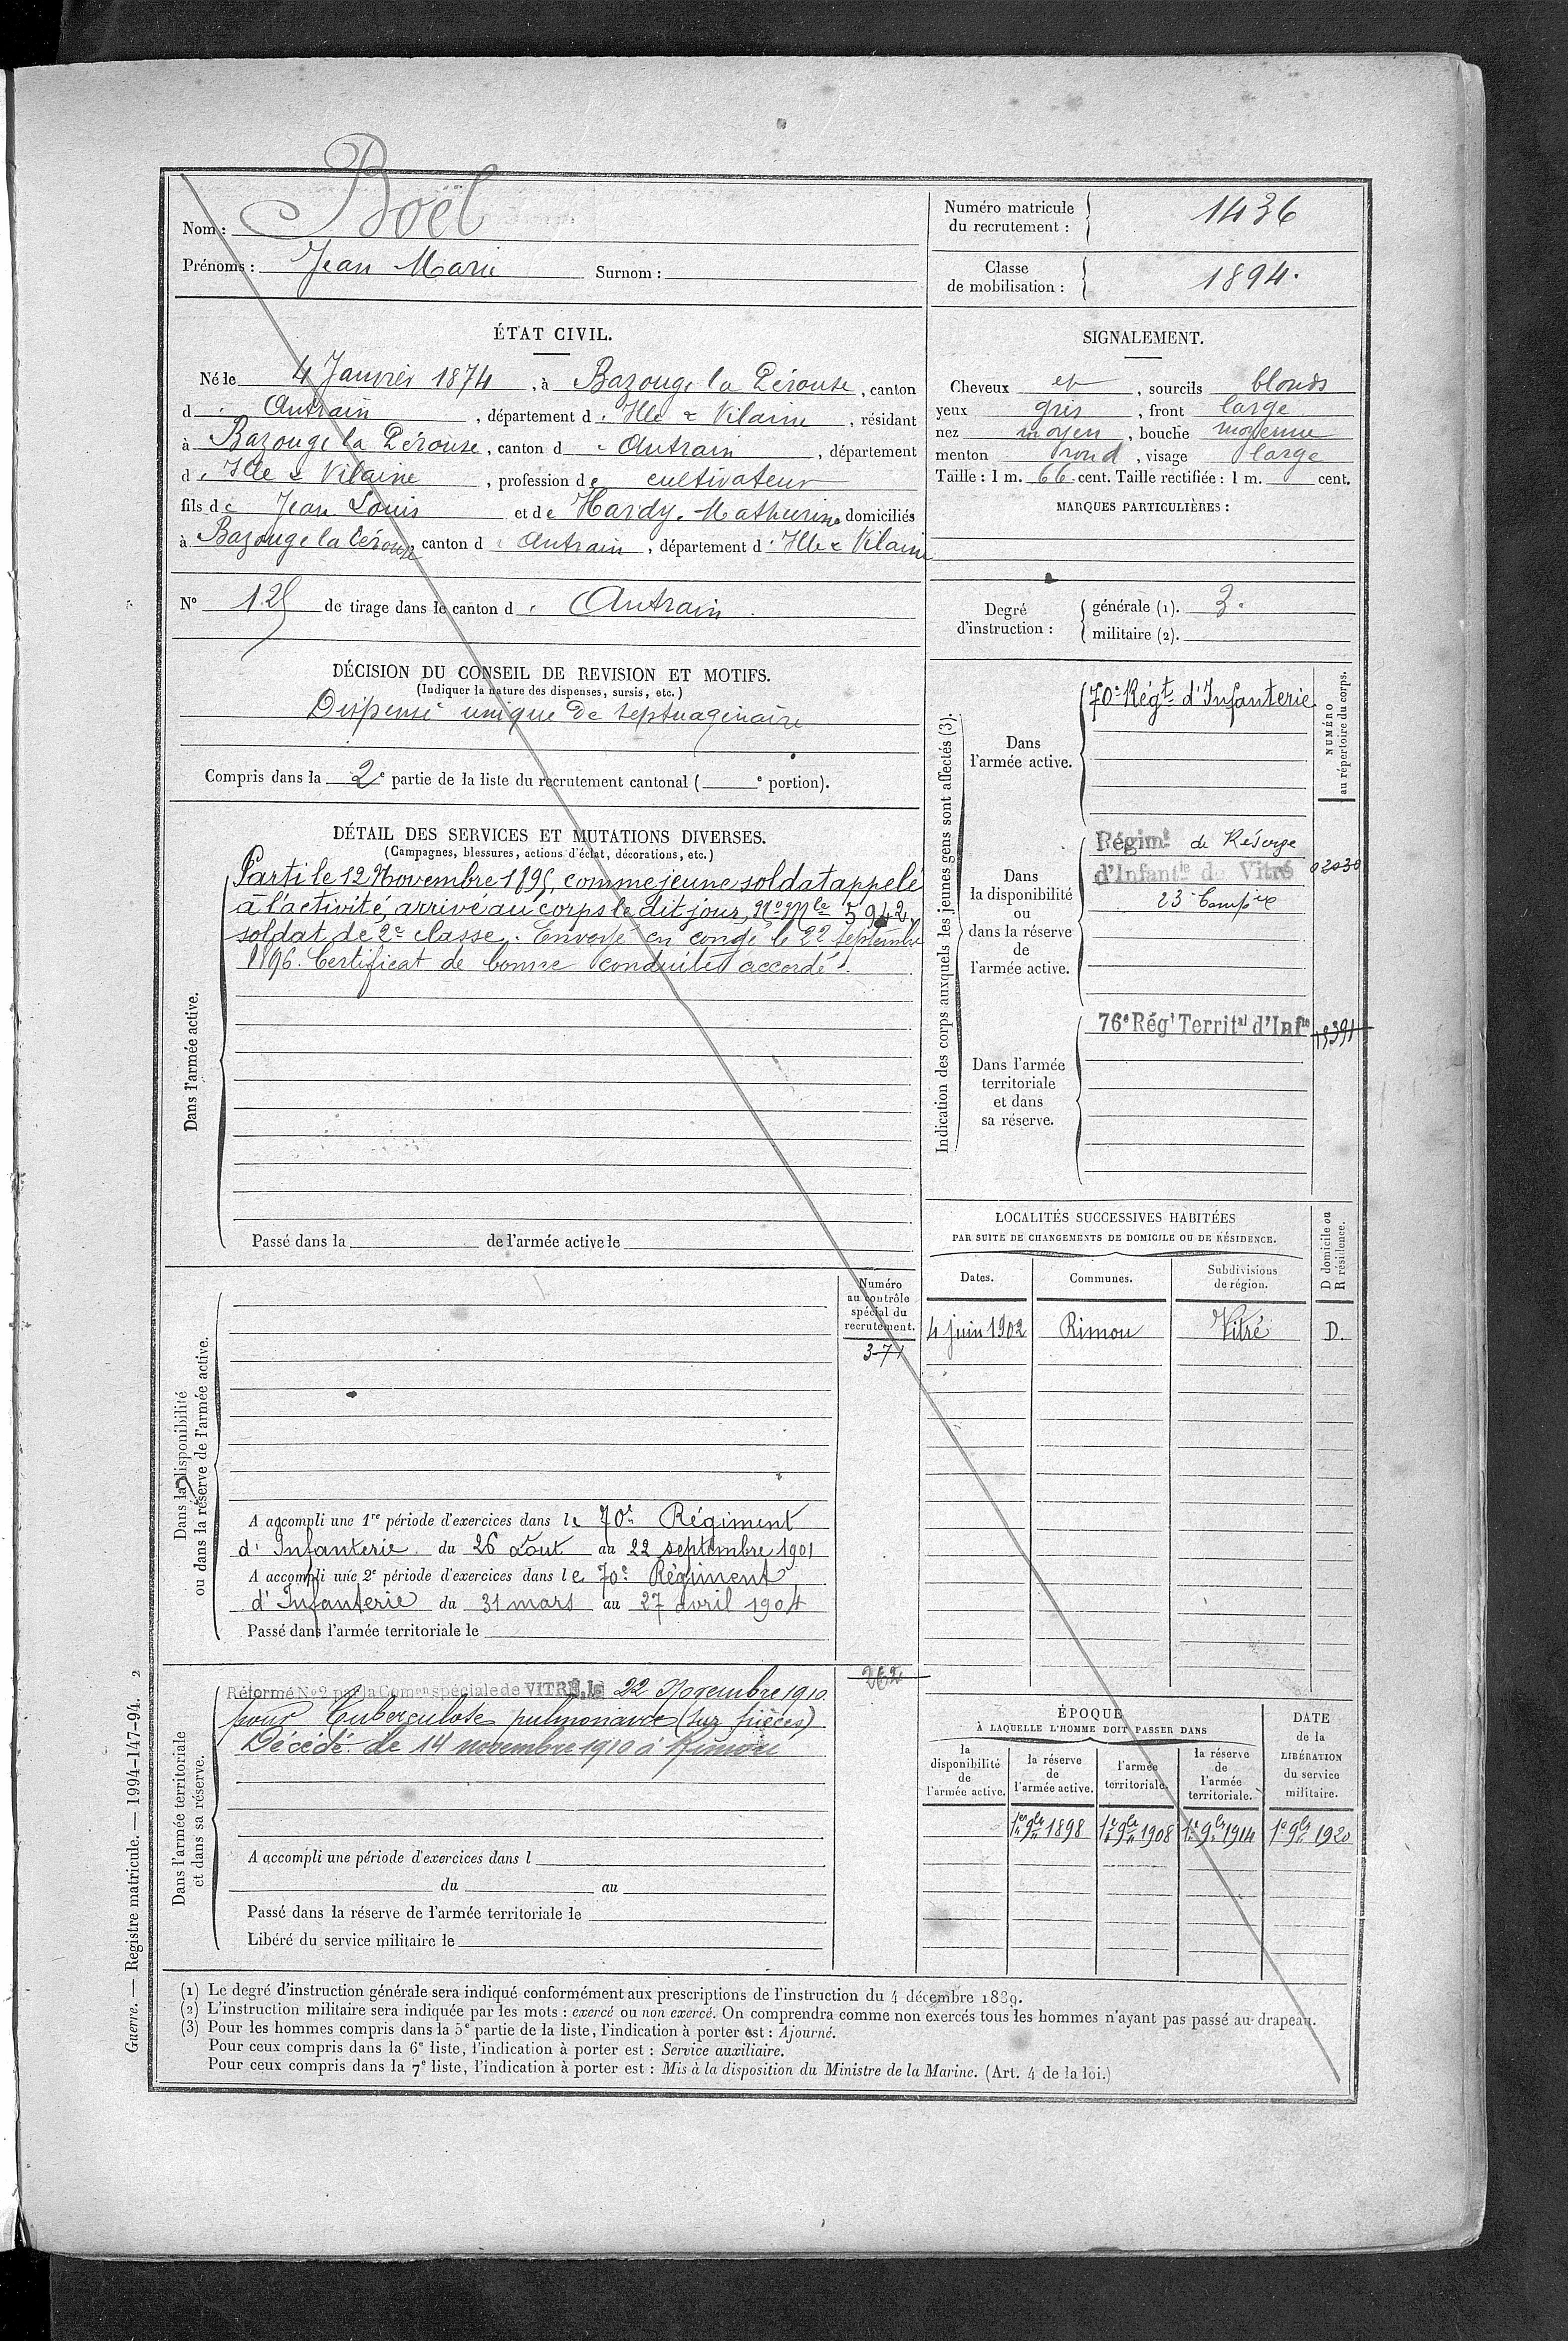 Nom : Boël
Prénoms : Jean Marie Surnom :
Numéro matricule du recrutement : 1436
Classe de mobilisation : 1894.
ÉTAT CIVIL.
Né le 4 Janvier 1874, à Bazouge la Pérouse, canton
d Antrain, département d Ille & Vilaine, résidant
à Bazouge la Pérouse, canton d Antrain, département
d Ille & Vilaine, profession de cultivateur
fils de Jean Louis et de Hardy. Mathurine domiciliés
à Bazouge la Pérouse canton d Antrain, département d Ille & Vilaine
N° 125 de tirage dans le canton d Antrain.
DÉCISION DU CONSEIL DE REVISION ET MOTIFS.
(Indiquer la nature des dispenses, sursis, etc.)
Dispensé unique de septuagénaire
Compris dans la 2e partie de la liste du recrutement cantonal ( e portion).
DÉTAIL DES SERVICES ET MUTATIONS DIVERSES.
(Campagnes, blessures, actions d'éclat, décorations, etc.)
Dans l'armée active.
Parti le 12 Novembre 1895, comme jeune soldat appelé
à l'activité, arrivé au corps le dit jour, No Mle 5942,
soldat de 2e classe. Envoyé en congé le 22 septembre
1896. Certificat de bonne conduite accordé.
Passé dans la de l'armée active le
Dans la disponibilité
ou dans la réserve de l'armée active.
Numéro
au contrôle
spécial du
recrutement.
371
A accompli une 1re période d'exercices dans le 70e Régiment
d'Infanterie du 26 Aout au 22 septembre 1901
A accompli une 2e période d'exercices dans le 70e Régiment
d'Infanterie du 31 mars au 27 avril 1904
Passé dans l'armée territoriale le
Dans l'armée territoriale
et dans sa réserve.
262
Réformé No 2 par la Comon spéciale de VITRÉ, le 22 Novembre 1910
pour Tuberculose pulmonaire (sur pièces)
Décédé le 14 novembre 1910 à Rimou
A accompli une période d'exercices dans l
du au
Passé dans la réserve de l'armée territoriale le
Libéré du service militaire le
SIGNALEMENT.
Cheveux et, sourcils blonds
yeux gris, front large
nez moyen, bouche moyenne
menton rond, visage large
Taille : 1 m. 66 cent. Taille rectifiée : 1 m. cent.
MARQUES PARTICULIÈRES :
Degré d'instruction : générale (1). 3.
militaire (2).
Indication des corps auxquels les jeunes gens sont affectés (3).
NUMÉRO
au répertoire du corps.
Dans
l'armée active.
70e Régt d'Infanterie
Dans
la disponibilité
ou
dans la réserve
de
l'armée active.
Régimt de Réserve
d'Infantie de Vitré 02030
23e Compie
Dans l'armée
territoriale
et dans
sa réserve.
76e Régt Territal d'Infie 15391
LOCALITÉS SUCCESSIVES HABITÉES
PAR SUITE DE CHANGEMENTS DE DOMICILE OU DE RÉSIDENCE.
D domicile ou
R résidence.
Dates. Communes. Subdivisions de région.
4 juin 1902 Rimou Vitré D.
ÉPOQUE
À LAQUELLE L'HOMME DOIT PASSER DANS
DATE
de la
LIBÉRATION
du service
militaire.
la disponibilité de l'armée active.
la réserve de l'armée active.
l'armée territoriale.
la réserve de l'armée territoriale.
1er 9bre 1898 1er 9bre 1908 1er 9bre 1914 1er 9bre 1920
(1) Le degré d'instruction générale sera indiqué conformément aux prescriptions de l'instruction du 4 décembre 1889.
(2) L'instruction militaire sera indiquée par les mots : exercé ou non exercé. On comprendra comme non exercés tous les hommes n'ayant pas passé au drapeau.
(3) Pour les hommes compris dans la 5e partie de la liste, l'indication à porter est : Ajourné.
Pour ceux compris dans la 6e liste, l'indication à porter est : Service auxiliaire.
Pour ceux compris dans la 7e liste, l'indication à porter est : Mis à la disposition du Ministre de la Marine. (Art. 4 de la loi.)
Guerre. — Registre matricule. — 1994-147-94. 2